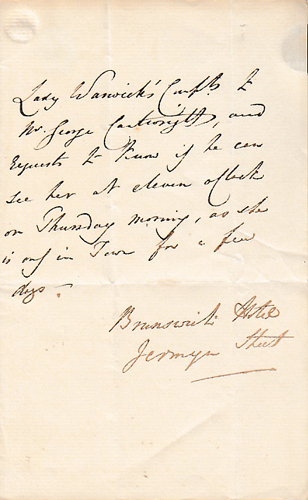 Lady Warwick's Compts to
Mr. George Cartwright, and
requests to know if he can
see her at eleven o'Clock
on Thursday morning, as she
is only in Town for a few
days.
Brunswick Hotel
Jermyn Street